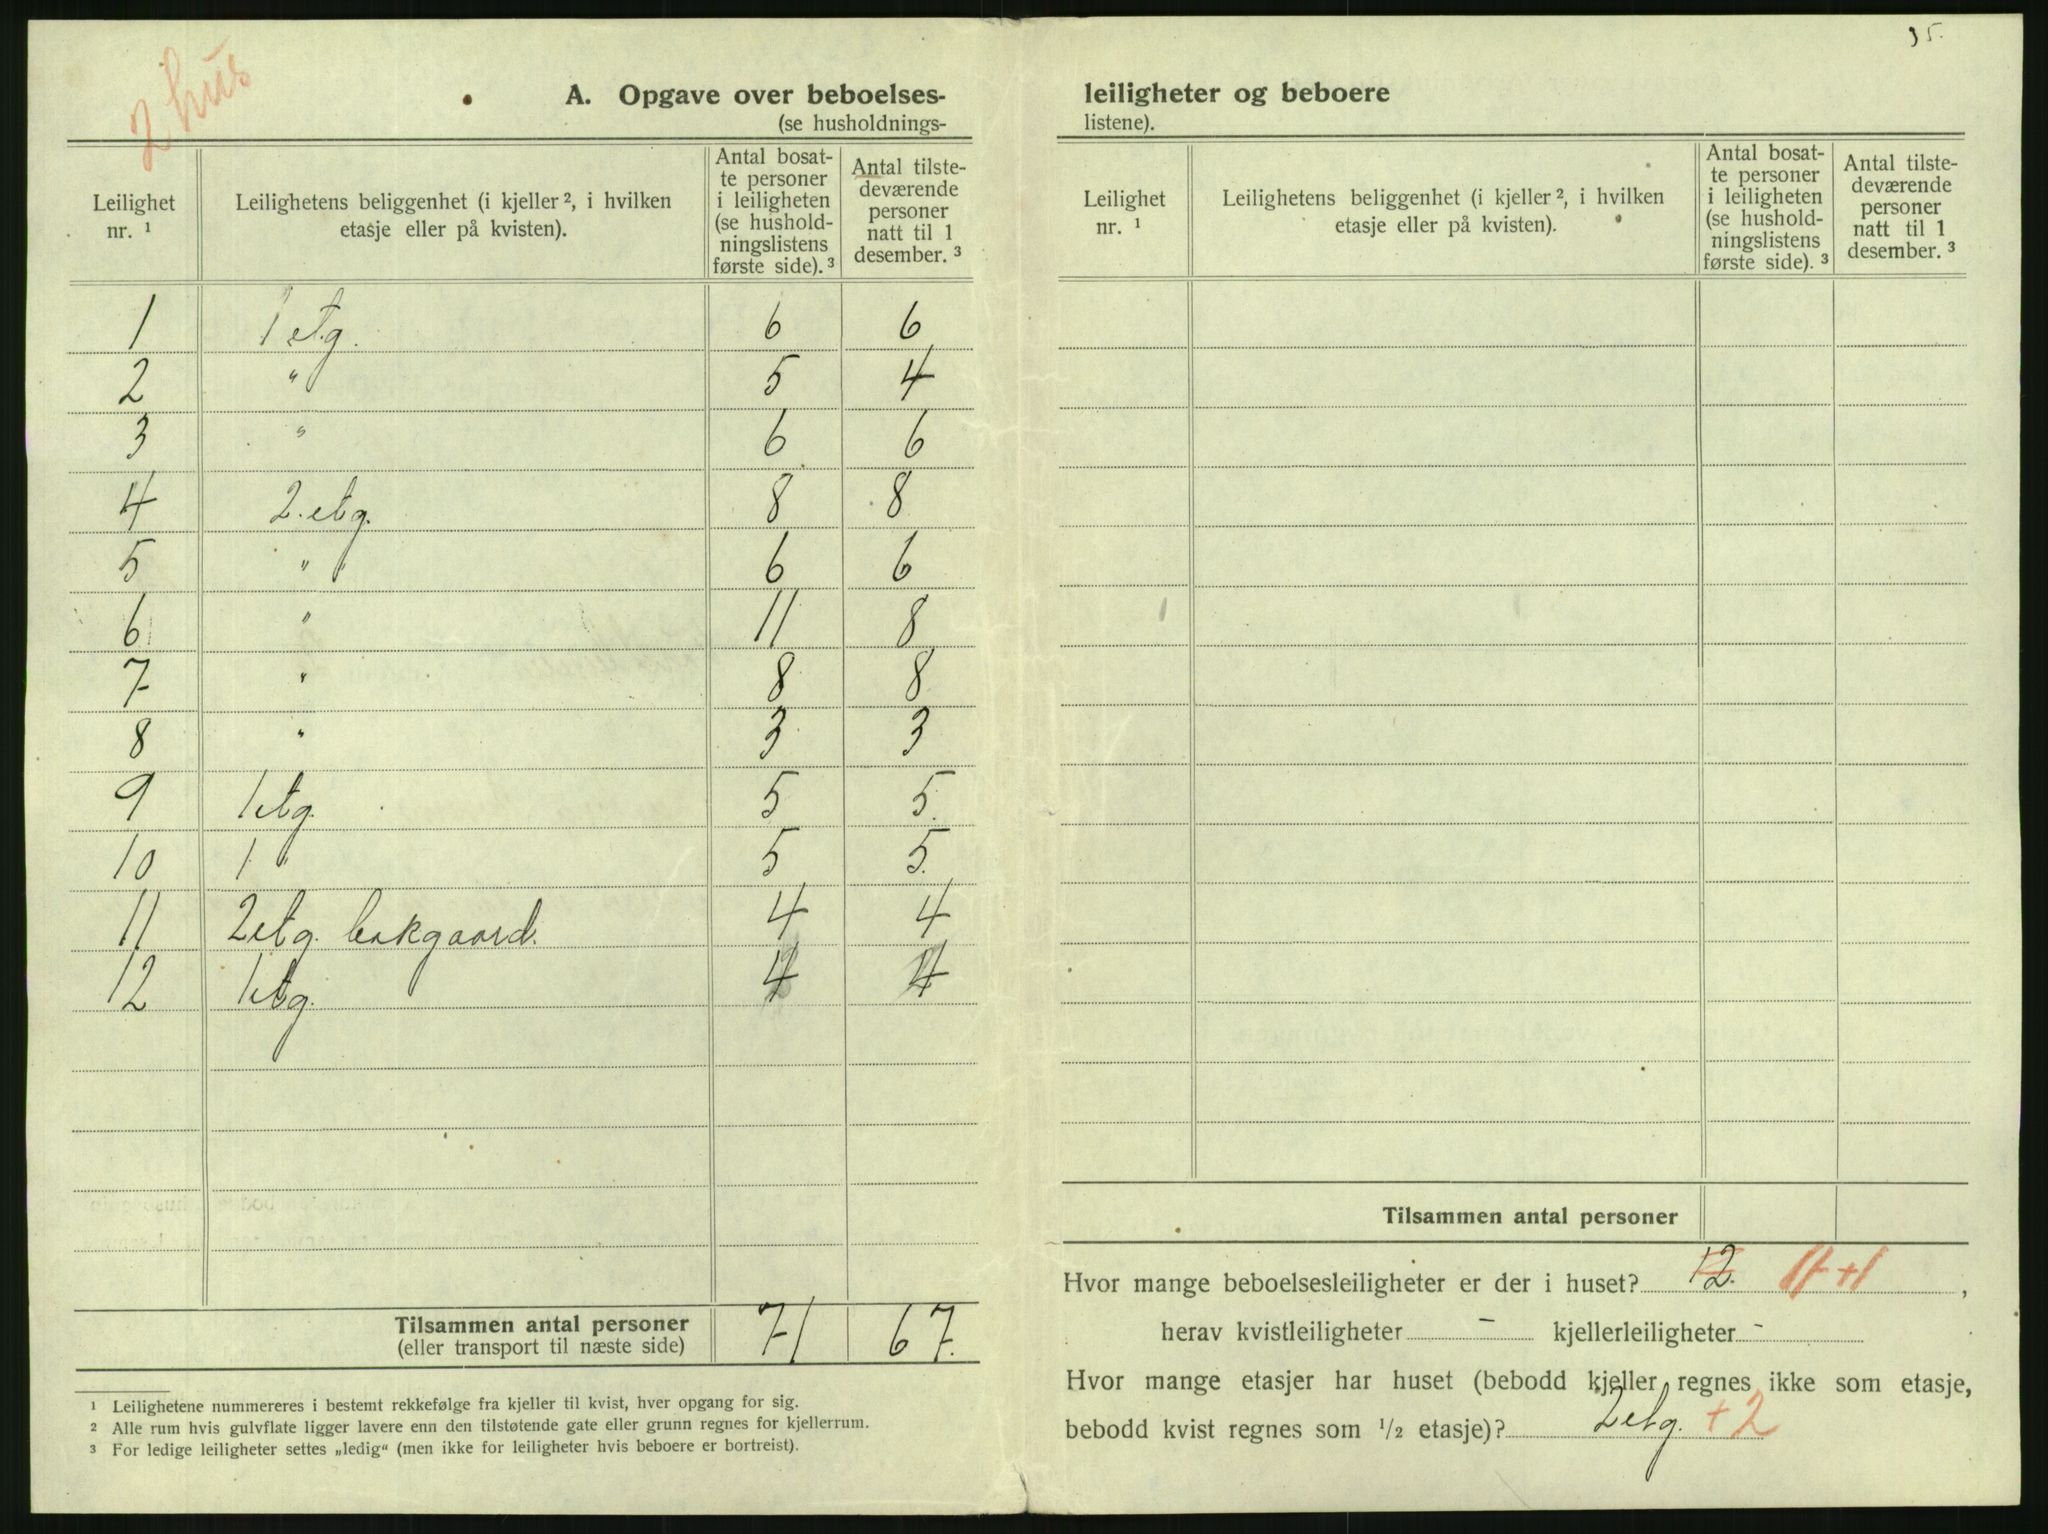 35.
2 hus
A. Opgave over beboelses-
(se husholdnings-
Leilighet nr. ¹ | Leilighetens beliggenhet (i kjeller ², i hvilken etasje eller på kvisten). | Antal bosatte personer i leiligheten (se husholdningslistens første side). ³ | Antal tilstedeværende personer natt til 1 desember. ³
1 | 1 etg. | 6 | 6
2 | " | 5 | 4
3 | " | 6 | 6
4 | 2. etg. | 8 | 8
5 | " | 6 | 6
6 | " | 11 | 8
7 | " | 8 | 8
8 | " | 3 | 3
9 | 1 etg. | 5 | 5.
10 | 1 " | 5 | 5.
11 | 2 etg. bakgaard. | 4 | 4
12 | 1 etg. | 4 | 4
Tilsammen antal personer | 71 | 67.
(eller transport til næste side)
¹ Leilighetene nummereres i bestemt rekkefølge fra kjeller til kvist, hver opgang for sig.
² Alle rum hvis gulvflate ligger lavere enn den tilstøtende gate eller grunn regnes for kjellerrum.
³ For ledige leiligheter settes „ledig“ (men ikke for leiligheter hvis beboere er bortreist).
leiligheter og beboere
listene).
Leilighet nr. ¹ | Leilighetens beliggenhet (i kjeller ², i hvilken etasje eller på kvisten). | Antal bosatte personer i leiligheten (se husholdningslistens første side). ³ | Antal tilstedeværende personer natt til 1 desember. ³
Tilsammen antal personer
Hvor mange beboelsesleiligheter er der i huset? 12. 11+1,
herav kvistleiligheter - kjellerleiligheter -
Hvor mange etasjer har huset (bebodd kjeller regnes ikke som etasje,
bebodd kvist regnes som ½ etasje)? 2 etg. + 2